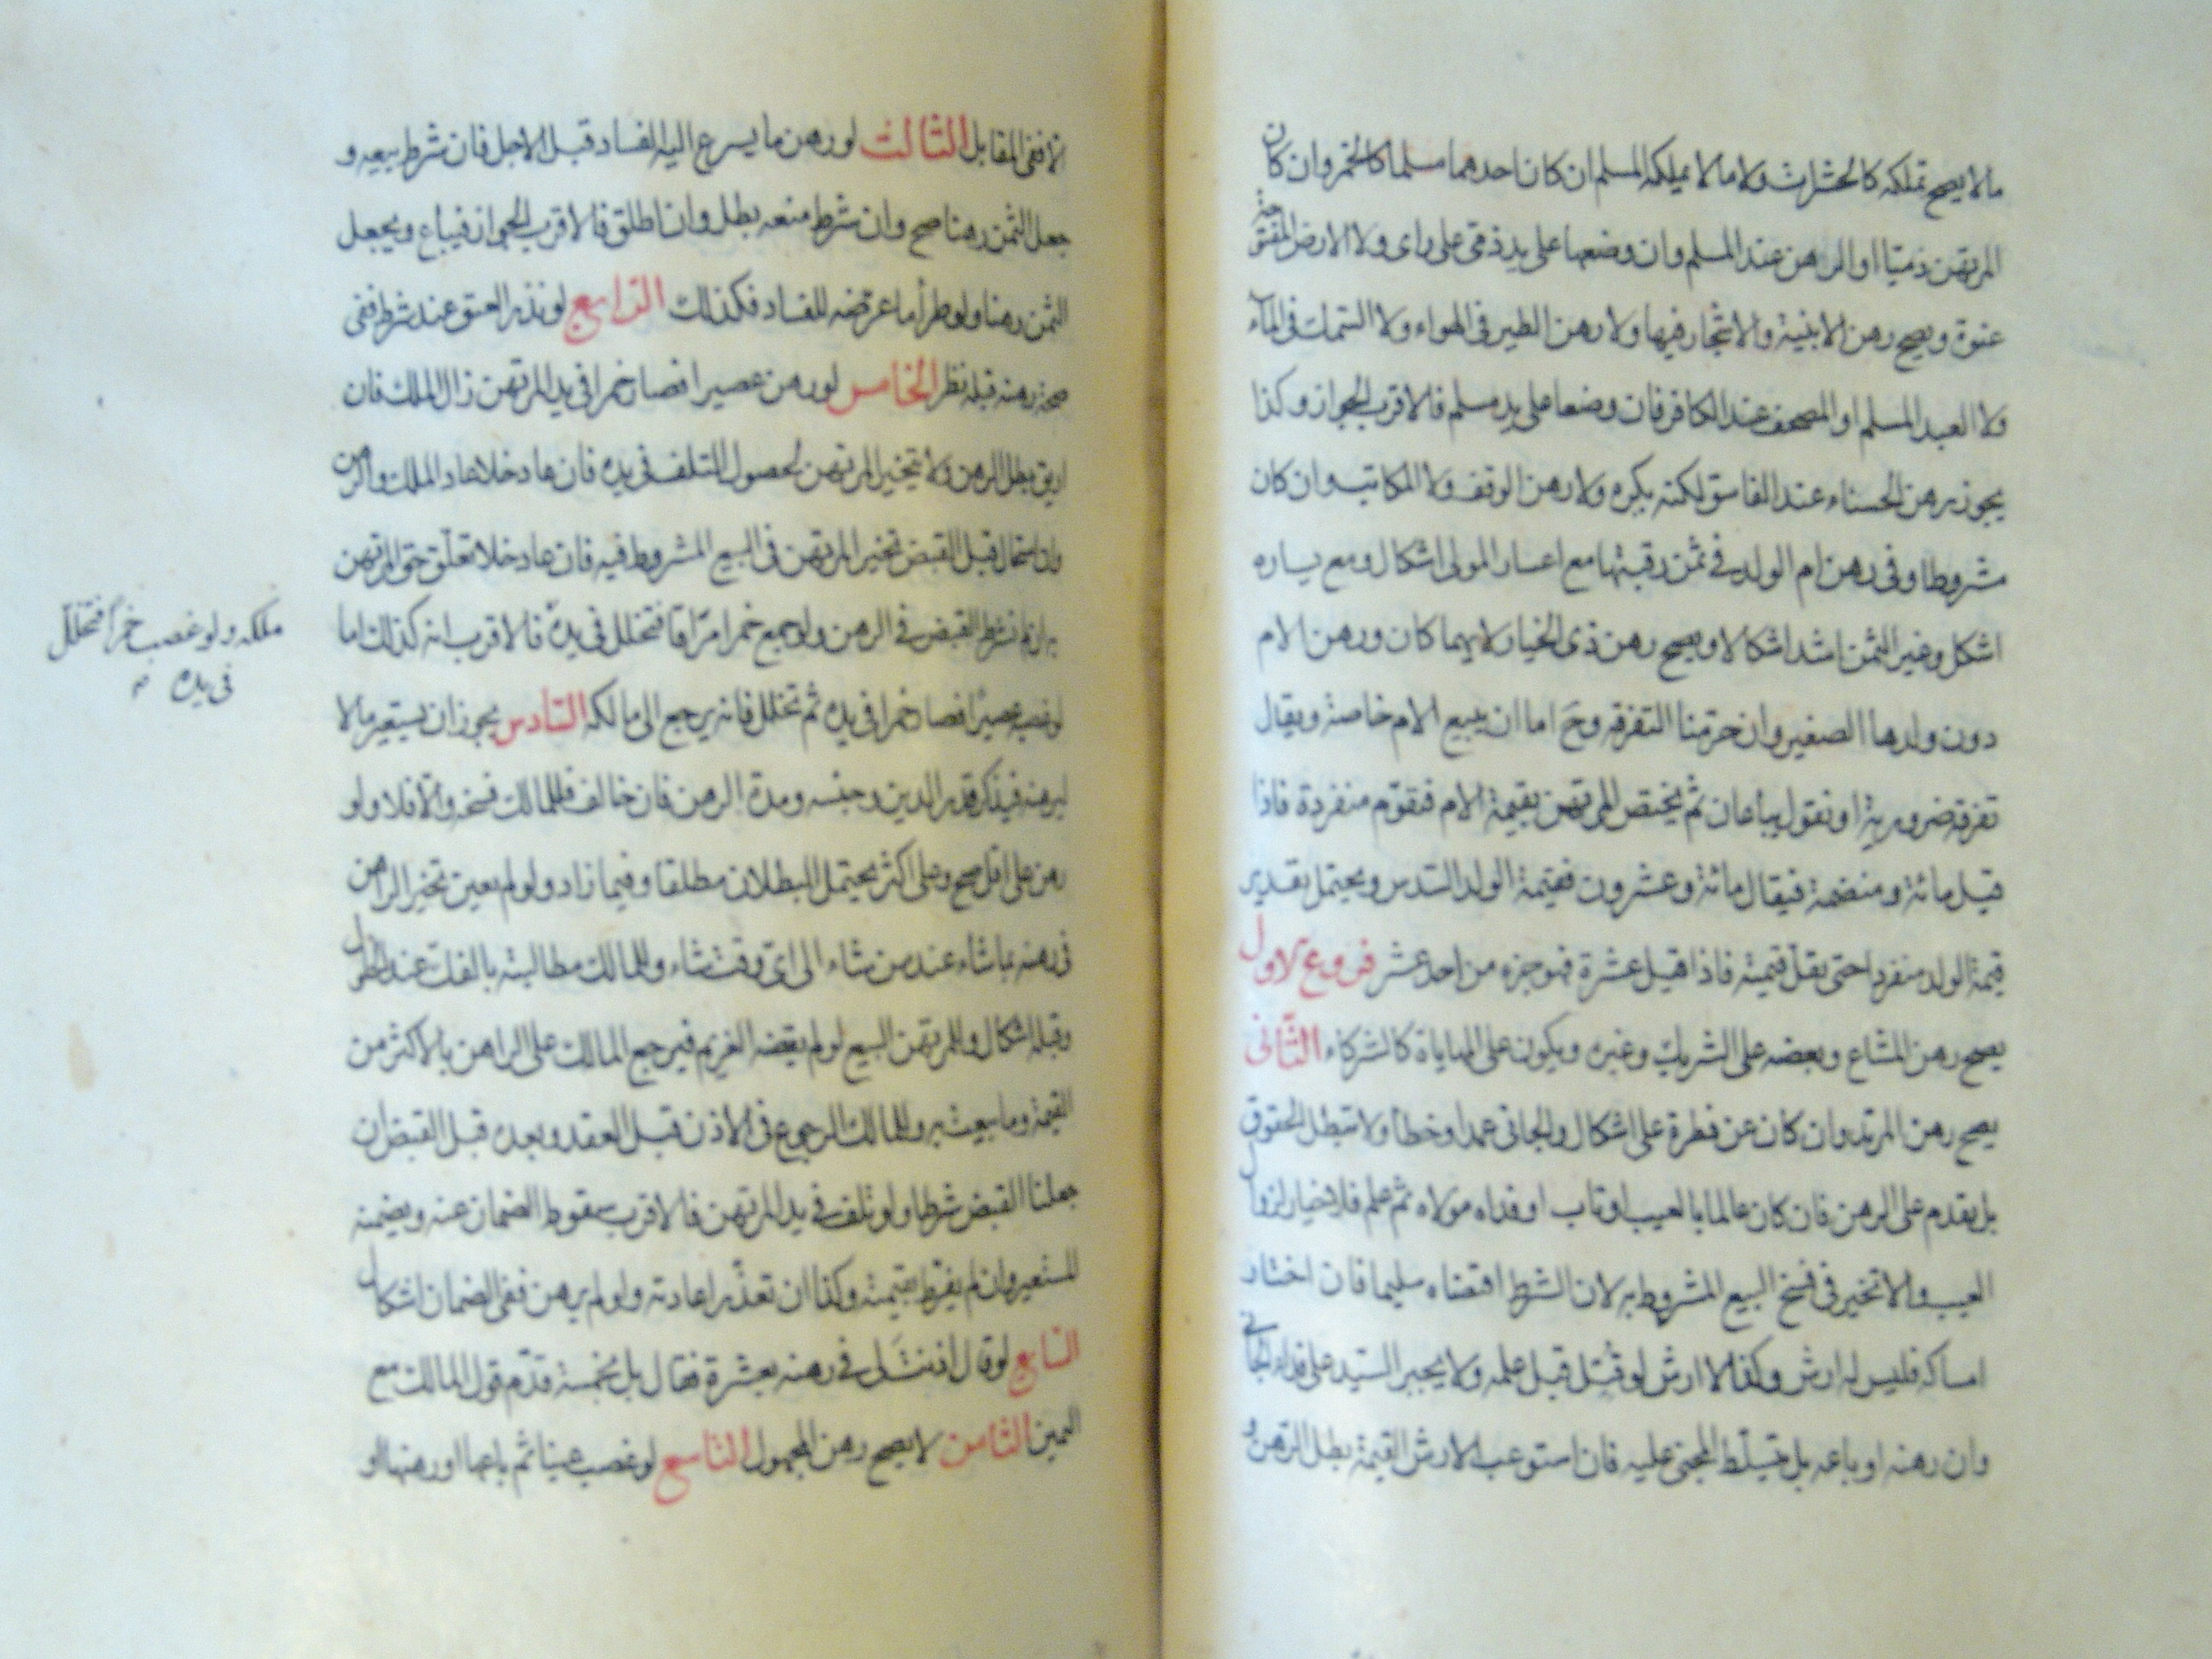 ما لا يصح تملكه كالحشرات ولا ما لا يملكه المسلم ان كان احدهما مسلما كالخمر وان كان
المرتهن ذميا او الراهن عند المسلم وان وضعها على يد ذمى على راى ولا الارض المفتوحة
عنوة ويصح رهن الابنية والاشجار فيها ولا رهن الطير فى الهواء ولا السمك فى الماء
ولا العبد المسلم او المصحف عند الكافر فان وضعا على يد مسلم فالاقرب الجواز وكذا
يجوز رهن الحسناء عند الفاسق لكنه يكره ولا رهن الوقف ولا المكاتب وان كان
مشروطا وفى رهن ام الولد فى ثمن رقبتها مع اعسار المولى اشكال ومع يساره
اشكل وغير الثمن اشد اشكالا ويصح رهن ذى الخيار لايهما كان ورهن الام
دون ولدها الصغير وان حرمنا التفرقه وح اما ان يبيع الام خاصة ويقال
تفرقة ضرورية او نقول يباعان ثم يختص المرتهن بقيمة الام فتقوم منفردة فاذا
قيل مائة ومنضمة فيقال مائة وعشرون فقيمة الولد السدس ويحتمل تقدير
قيمة الولد منفردا حتى يقل قيمته فاذا قيل عشرة فهو جزء من احد عشر فروع الاول
يصح رهن المشاع وبعضه على الشريك وغيره ويكون على المهاياة كالشركاء الثانى
يصح رهن المرتد وان كان عن فطرة على اشكال والجانى عمدا وخطأ ولا تبطل الحقوق
بل يقدم على الرهن فان كان عالما بالعيب او تاب او فداه مولاه ثم علم فلا خيار لزوال
العيب والا تخير فى فسخ البيع المشروط به لان الشرط اقتضاه سليما فان اختار
امساكه فليس له ارش وكذا لا ارش لو قتل قبل علمه ولا يجبر السيد على فداء الجانى
وان رهنه او باعه بل يتسلط المجنى عليه فان استوعب الارش القيمة بطل الرهن و
الا ففى المقابل الثالث لو رهن ما يسرع اليه الفساد قبل الاجل فان شرط بيعه و
جعل الثمن رهنا صح وان شرط منعه بطل وان اطلق فالاقرب الجواز فيباع ويجعل
الثمن رهنا ولو طرأ ما عرضه للفساد فكذلك الرابع لو نذر العتق عند شرط ففى
صحة رهنه قبله نظر الخامس لو رهن عصيرا فصار خمرا فى يد المرتهن زال الملك فان
اريق بطل الرهن ولا يتخير المرتهن لحصول التلف فى يده فان عاد خلا عاد الملك والرهن
ولو استحال قبل القبض تخير المرتهن فى البيع المشروط فيه فان عاد خلا تعلق حق المرتهن
به ان لم نشرط القبض فى الرهن ولو جمع خمرا مراقا فتخلل فى يده فالاقرب انه كذلك اما
لو غصبه عصيرا فصار خمرا فى يده ثم تخلل فانه يرجع الى مالكه السادس يجوز ان يستعير مالا
ليرهنه فيذكر قدر الدين وجنسه ومدة الرهن فان خالف فللمالك فسخه والا فلا ولو
رهن على اقل صح وعلى اكثر يحتمل البطلان مطلقا وفيما زاد ولو لم يعين تخير الراهن
فى رهنه بما شاء عند من شاء الى اى وقت شاء وللمالك مطالبته بالفك عند الحلول
وقبله اشكال وللمرتهن البيع لو لم يقضه الغريم فيرجع المالك على الراهن بالاكثر من
القيمة وما بيعت به وللمالك الرجوع فى الاذن قبل العقد وبعده قبل القبض ان
جعلنا القبض شرطا ولو تلف فى يد المرتهن فالاقرب سقوط الضمان عنه ويضمنه
المستعير وان لم يفرط بقيمته وكذا ان تعذر اعادته ولو لم يرهن ففى الضمان اشكال
السابع لو قال اذنت لى فى رهنه بعشرة فقال بل بخمسة قدم قول المالك مع
اليمين الثامن لا يصح رهن المجهول التاسع لو غصب عينا ثم باعها او رهنها او
ملكه ولو غصب خمرا فتخلل
فى يده